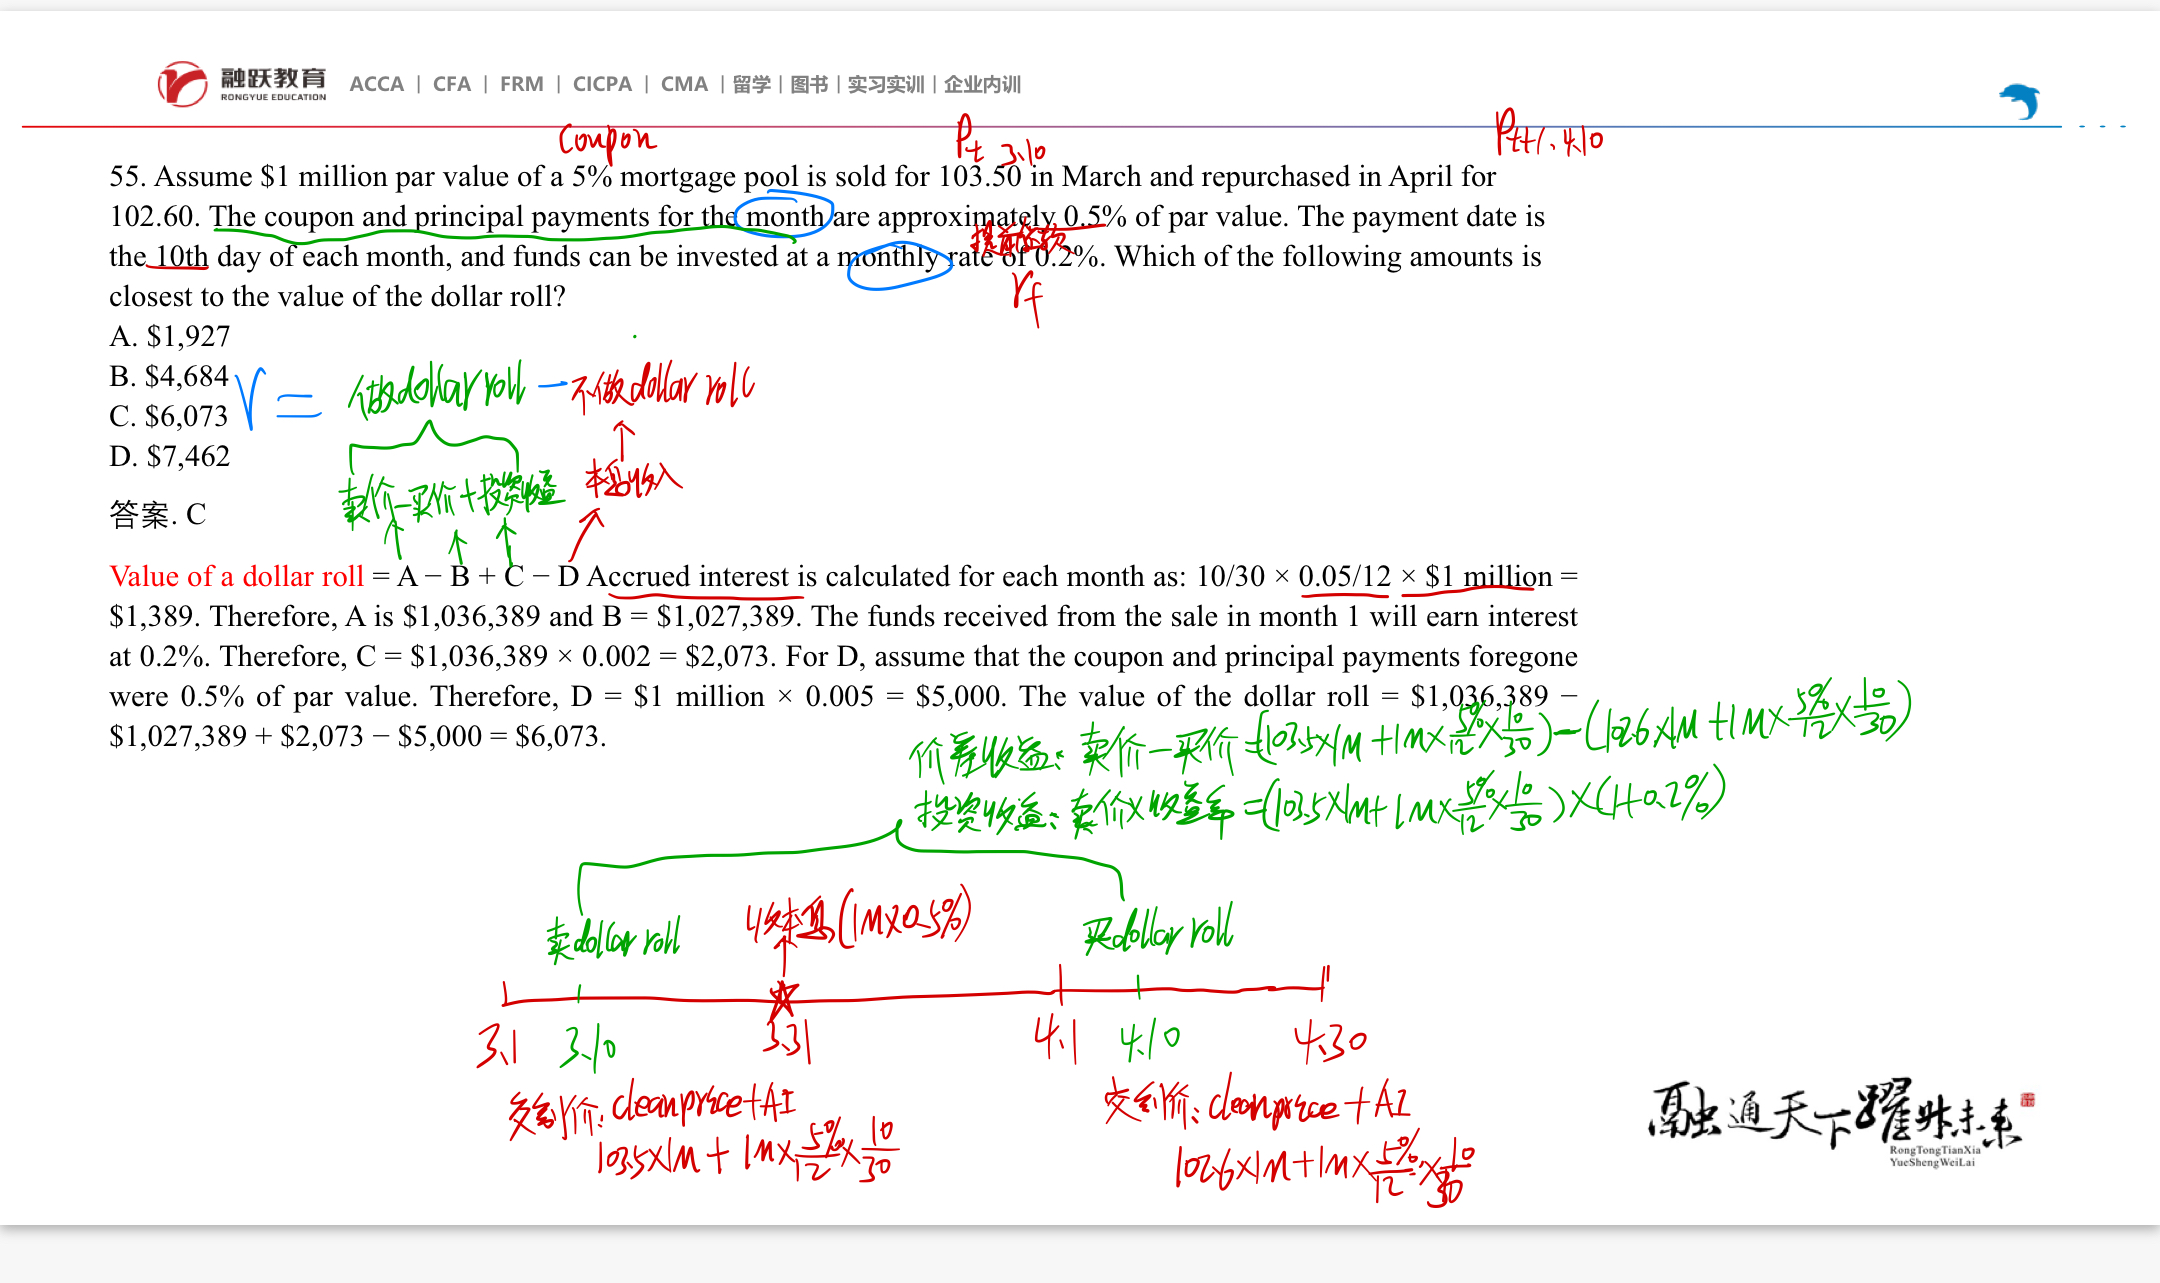 融跃教育
RONGYUE EDUCATION
ACCA | CFA | FRM | CICPA | CMA | 留学 | 图书 | 实习实训 | 企业内训
Coupon
Pt 3.10
Pt+1. 4.10
55. Assume $1 million par value of a 5% mortgage pool is sold for 103.50 in March and repurchased in April for
102.60. The coupon and principal payments for the month are approximately 0.5% of par value. The payment date is
the 10th day of each month, and funds can be invested at a monthly rate of 0.2%. Which of the following amounts is
closest to the value of the dollar roll?
rf
A. $1,927
B. $4,684
C. $6,073
D. $7,462
V = 做dollar roll — 不做dollar roll
卖价-买价+投资收益
本息收入
答案. C
Value of a dollar roll = A − B + C − D Accrued interest is calculated for each month as: 10/30 × 0.05/12 × $1 million =
$1,389. Therefore, A is $1,036,389 and B = $1,027,389. The funds received from the sale in month 1 will earn interest
at 0.2%. Therefore, C = $1,036,389 × 0.002 = $2,073. For D, assume that the coupon and principal payments foregone
were 0.5% of par value. Therefore, D = $1 million × 0.005 = $5,000. The value of the dollar roll = $1,036,389 −
$1,027,389 + $2,073 − $5,000 = $6,073.
价差收益: 卖价-买价=(103.5×1M+1M×5%/12×10/30)-(102.6×1M+1M×5%/12×10/30)
投资收益: 卖价×收益率=(103.5×1M+1M×5%/12×10/30)×(1+0.2%)
卖dollar roll
收本息(1M×0.5%)
买dollar roll
3.1
3.10
3.31
4.1
4.10
4.30
交割价: clean price+AI
103.5×1M+1M×5%/12×10/30
交割价: clean price+AI
102.6×1M+1M×5%/12×10/30
融通天下 躍升未来
RongTongTianXia
YueShengWeiLai